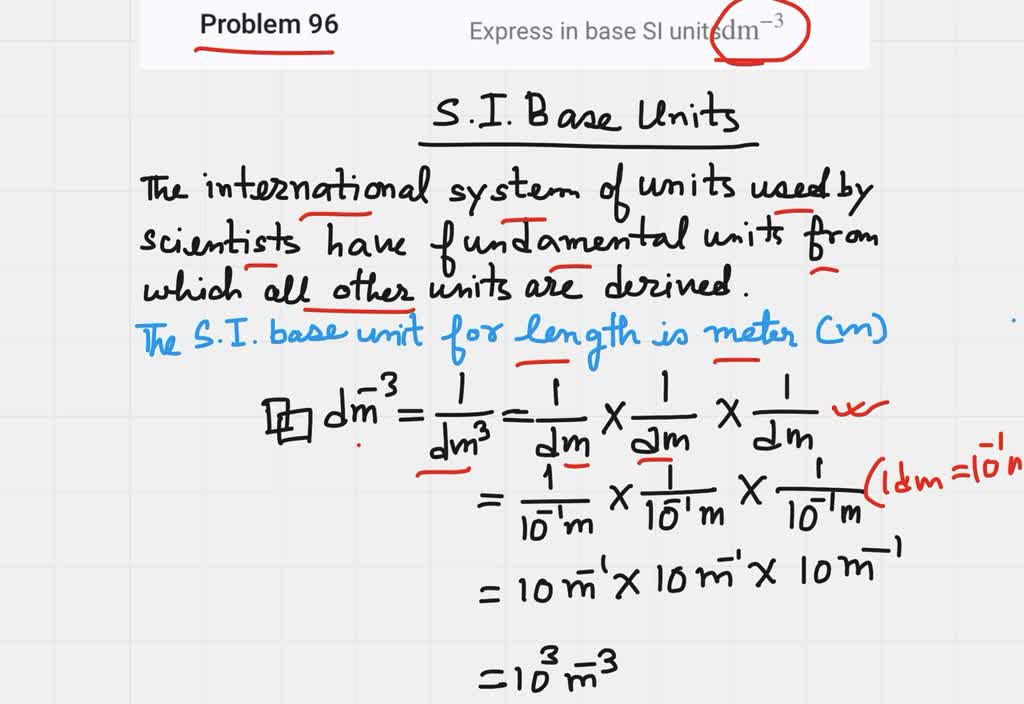 Problem 96
Express in base SI units dm⁻³
S.I. Base Units
The international system of units used by
scientists have fundamental units from
which all other units are derived.
The S.I. base unit for length is meter (m)
dm⁻³ = 1/dm³ = 1/dm × 1/dm × 1/dm
= 1/10⁻¹m × 1/10⁻¹m × 1/10⁻¹m (1dm = 10⁻¹
= 10m⁻¹ × 10m⁻¹ × 10m⁻¹
= 10³ m⁻³